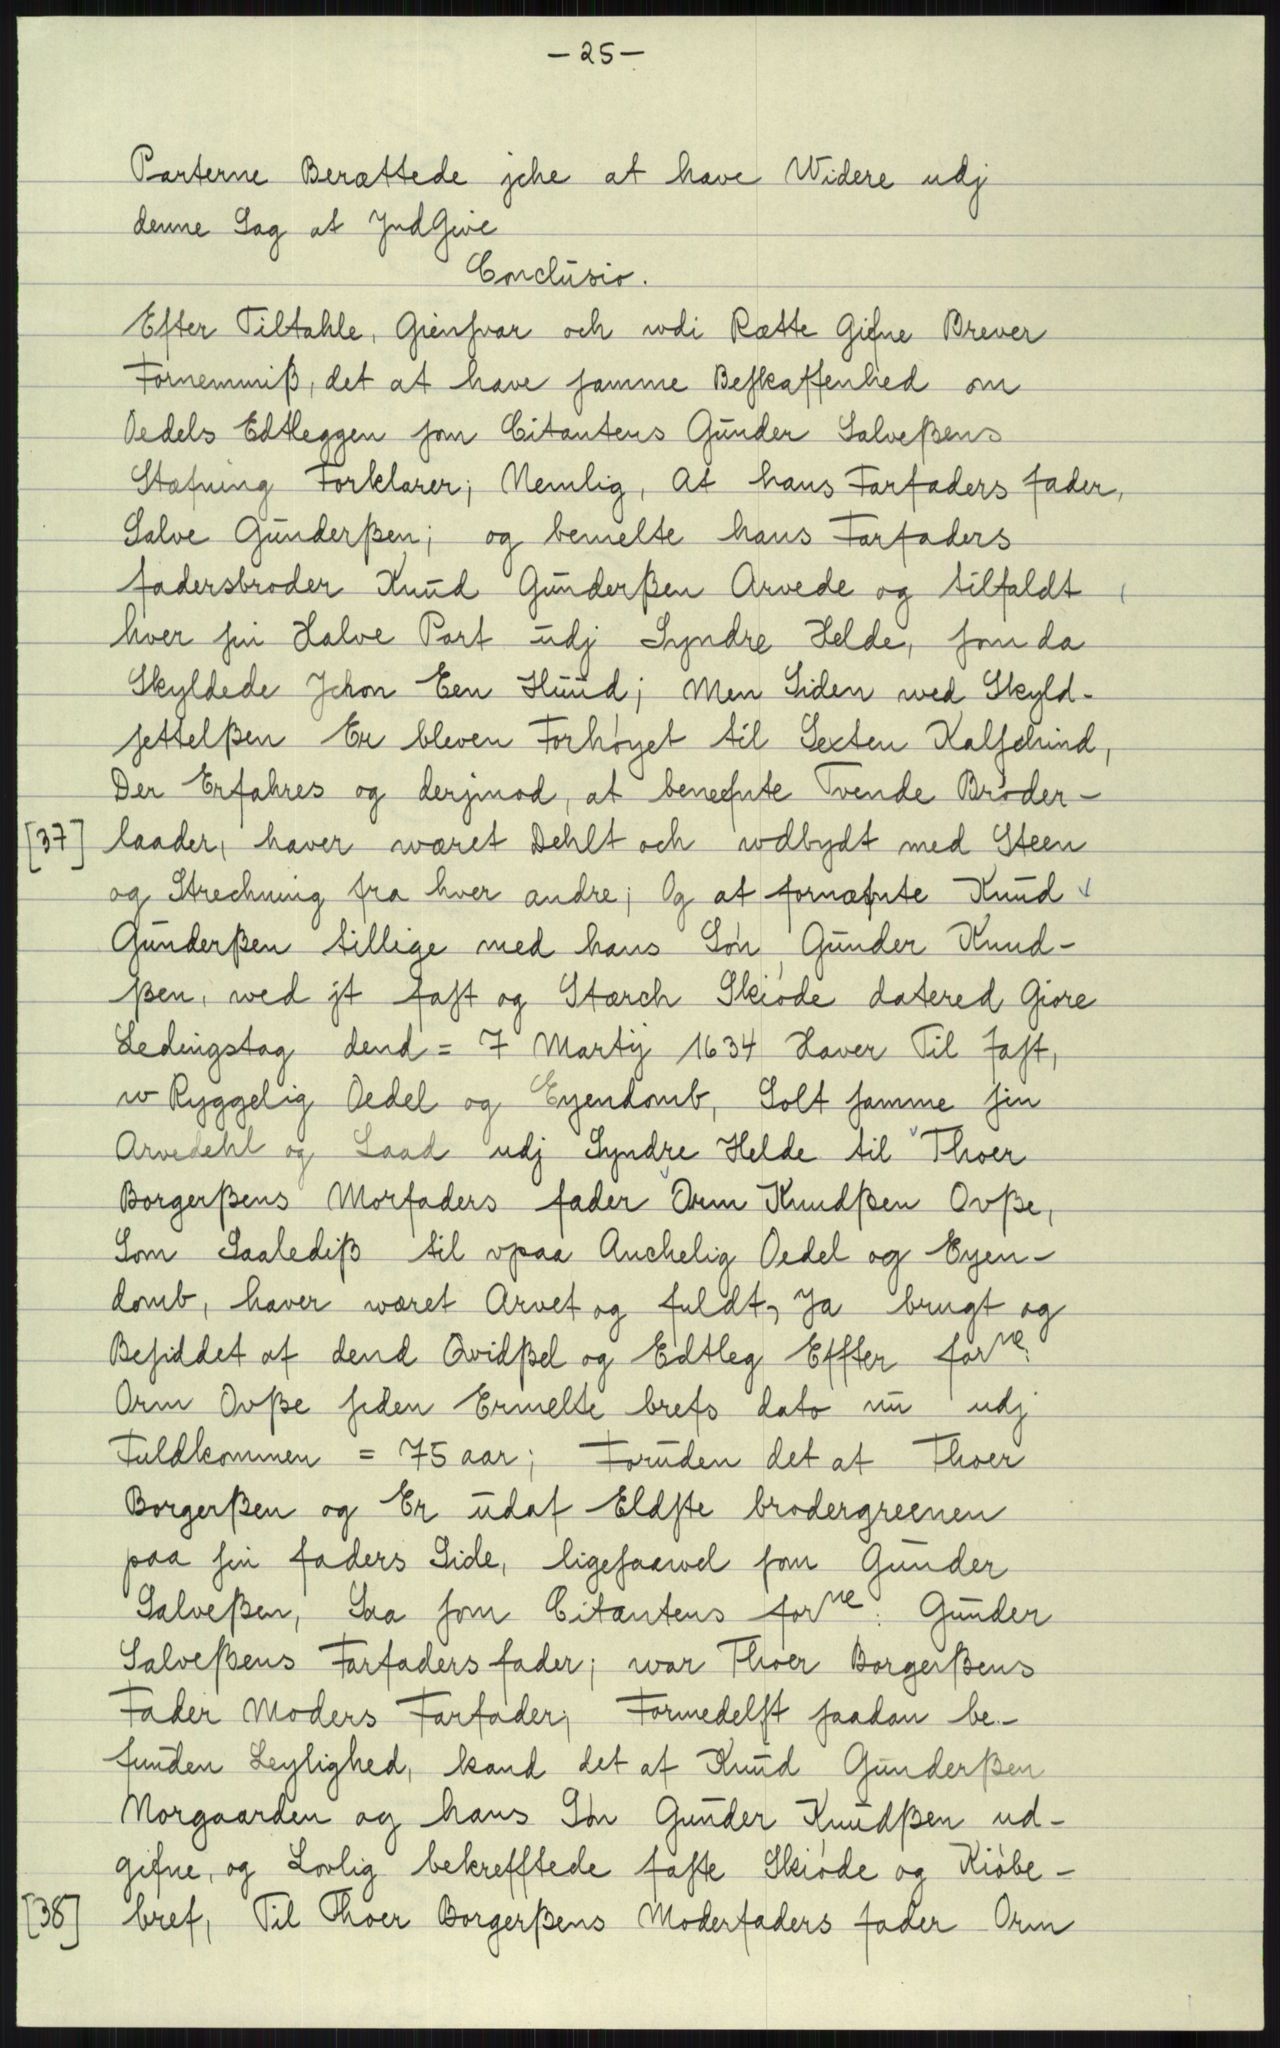 - 25 -
Parterne Berættede jche at have Widere udj
denne Sag at JndGive
Conclusio.
Efter Tiltahle, Giensvar och wdi Rætte Gifne Brever
Fornemmiß, det at have samme Beskaffenhed om
Oedels Edtleggen som Citantens Gunder Salveßens
Stæfning Forklarer; Nemlig, At hans Farfaders fader,
Salve Gunderßen; og bemelte hans Farfaders
fadersbroder Knud Gunderßen Arvede og tilfaldt
hver sin Halve Part udj Syndre Helde, som da
Skyldede Jchon Een Huud; Men Siden wed Skyld-
settelßen Er bleven Forhøyet til Sexten Kalfschind,
Der Erfahres og derjmod, at benefnte Tvende Brøder-
[37] laader, haver wæret Dehlt och wdbydt med Steen
og Strechning fra hver andre; Og at fornæfnte Knud
Gunderßen tillige med hans Søn, Gunder Knud-
ßen, wed jt fast og Stærch Skiøde datered Giøre
Ledingstag dend = 7 Martij 1634 Haver Til Fast,
w Ryggelig Oedel og Eyendomb, Solt samme sin
Arvedehl og Laad udj Syndre Helde til Thoer
Borgerßens Morfaders fader Orm Knudßen Ovße,
Som Saalediß til vpaa Anchelig Oedel og Eyen-
domb, haver wæret Arvet og fuldt, Ja brugt og
Besiddet af dend Qvidßel og Edtleg Effter forne:
Orm Ovße siden Ermelte brefs dato nu udj
Fuldkommen = 75 aar; Foruden det at Thoer
Borgerßen og Er udaf Eldste brodergreenen
paa sin faders Side, ligesaavel som Gunder
Salveßen, Saa som Citantens forne: Gunder
Salveßens Farfaders fader; war Thoer Borgerßens
Fader Moders Farfader; Formedelst saadan be-
funden Leylighed, kand det af Knud Gunderßen
Norgaarden og hans Søn Gunder Knudßen ud-
gifne, og Lovlig bekrefftede faste Skiøde og Kiøbe-
[38] bref, Til Thoer Borgerßens Moderfaders fader Orm